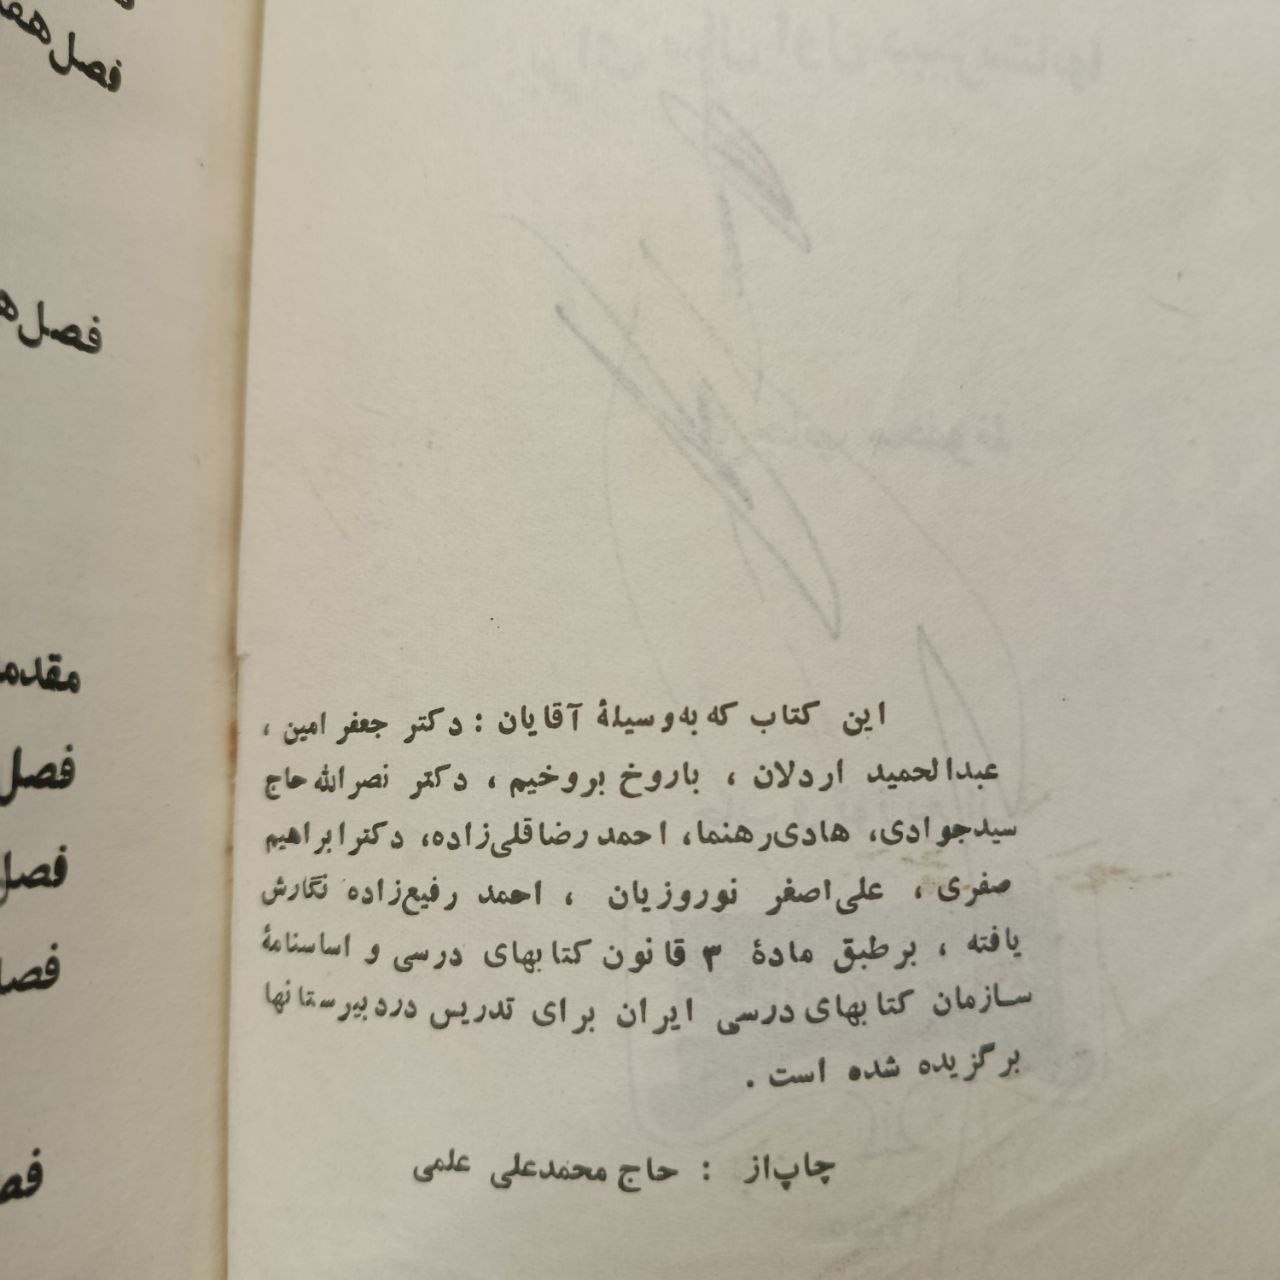 این کتاب که به‌وسیلهٔ آقایان : دکتر جعفر امین ،
عبدالحمید اردلان ، باروخ بروخیم ، دکتر نصرالله حاج
سیدجوادی، هادی‌رهنما، احمد رضاقلی‌زاده، دکترابراهیم
صفری ، علی‌اصغر نوروزیان ، احمد رفیع‌زاده نگارش
یافته ، برطبق مادهٔ ۳ قانون کتابهای درسی و اساسنامهٔ
سازمان کتابهای درسی ایران برای تدریس دردبیرستانها
برگزیده شده است .
چاپ‌از : حاج محمدعلی علمی
فصل
فصل
فصل
فصل